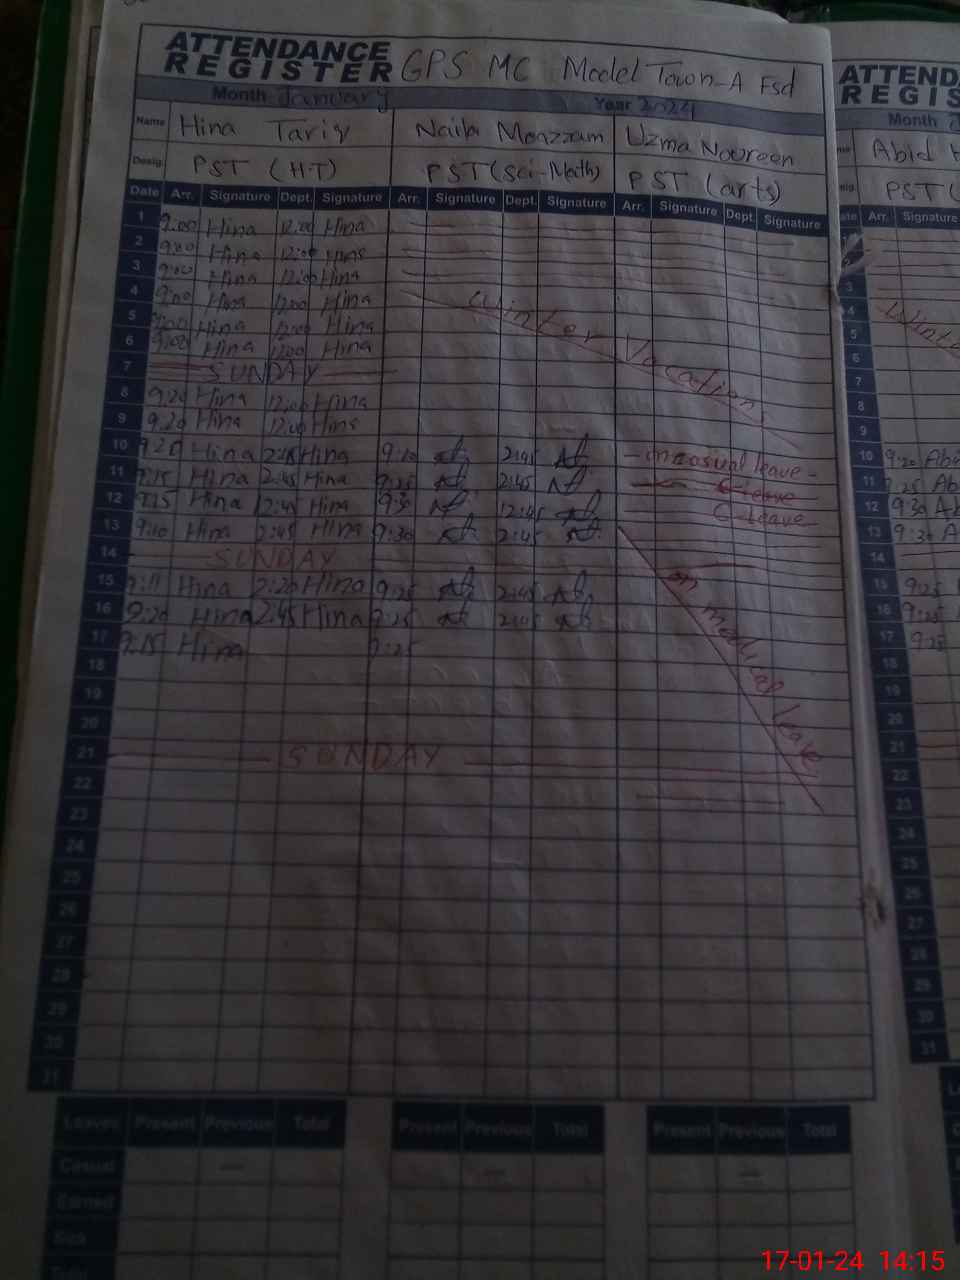 ATTENDANCE
REGISTER GPS MC Model Town-A Fsd
Month January Year 2024
Name Hina Tariq Naila Moazzam Uzma Noureen
Desig. PST (H-T) PST (Sci-Math) PST (arts)
Date Arr. Signature Dept. Signature Arr. Signature Dept. Signature Arr. Signature Dept. Signature
1 9:00 Hina 12:00 Hina
2 9:00 Hina 12:00 Hina
3 9:00 Hina 12:00 Hina
4 9:00 Hina 12:00 Hina
Winter Vacations
5 9:00 Hina 12:00 Hina
6 9:00 Hina 12:00 Hina
7 SUNDAY
8 9:20 Hina 12:00 Hina
9 9:20 Hina 12:00 Hina
10 9:25 Hina 2:45 Hina 9:20 2:45 - on casual leave -
11 9:15 Hina 2:45 Hina 9:25 2:45 C-leave
12 9:15 Hina 12:45 Hina 9:30 12:45 C-leave
13 9:10 Hina 2:45 Hina 9:30 2:45
14 SUNDAY
on medical leave
15 9:11 Hina 2:20 Hina 9:25 2:45
16 9:20 Hina 2:45 Hina 9:25 2:45
17 9:15 Hina 9:25
18
19
20
21 SUNDAY
22
23
24
25
26
27
28
29
30
31
Leaves Present Previous Total Present Previous Total Present Previous Total
Casual
Earned
Sick
ATTEND
REGIS
Month
Abid
PST (
Arr. Signature
3
4
5
6
7
8
9
10 9:20 Abi
11 9:25 Ab
12 9:30 Ab
13 9:30 A
14
15 9:25
16 9:25
17 9:25
18
19
20
21
22
23
24
25
26
27
28
29
30
31
17-01-24 14:15